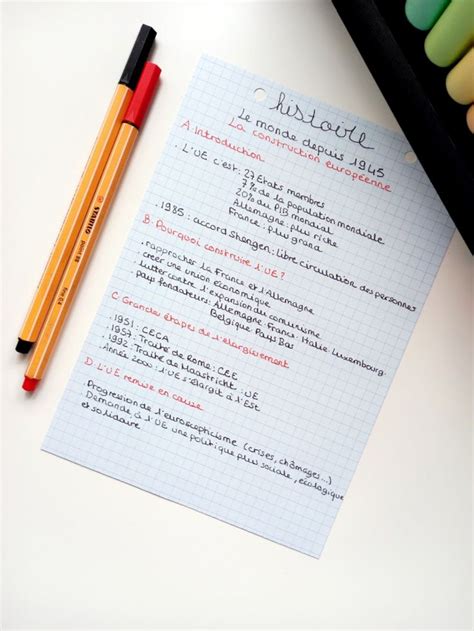 histoire
Le monde depuis 1945
La construction européenne
A. Introduction
. L'UE c'est : 27 Etats membres
7% de la population mondiale
20% du PIB mondial
Allemagne : plus riche
France : plus grand
. 1985 : accord Shengen : libre circulation des personnes
B. Pourquoi construire l'UE ?
. rapprocher la France et l'Allemagne
. creer une union économique
. lutter contre l'expansion du comunisme
. pays fondateurs : Allemagne. France. Italie. Luxembourg.
Belgique. Pays Bas
C. Grandes étapes de l'élargissement
. 1951 : CECA
. 1957 : Traité de Rome : CEE
. 1992 : Traité de Maastricht : UE
. Année 2000 : l'UE s'élargit à l'Est
D. L'UE remise en cause
. Progression de l'euroscepticisme (crises, chômages...)
. Demande à l'UE une politique plus sociale, écologique
et solidaire
STABILO
point 88